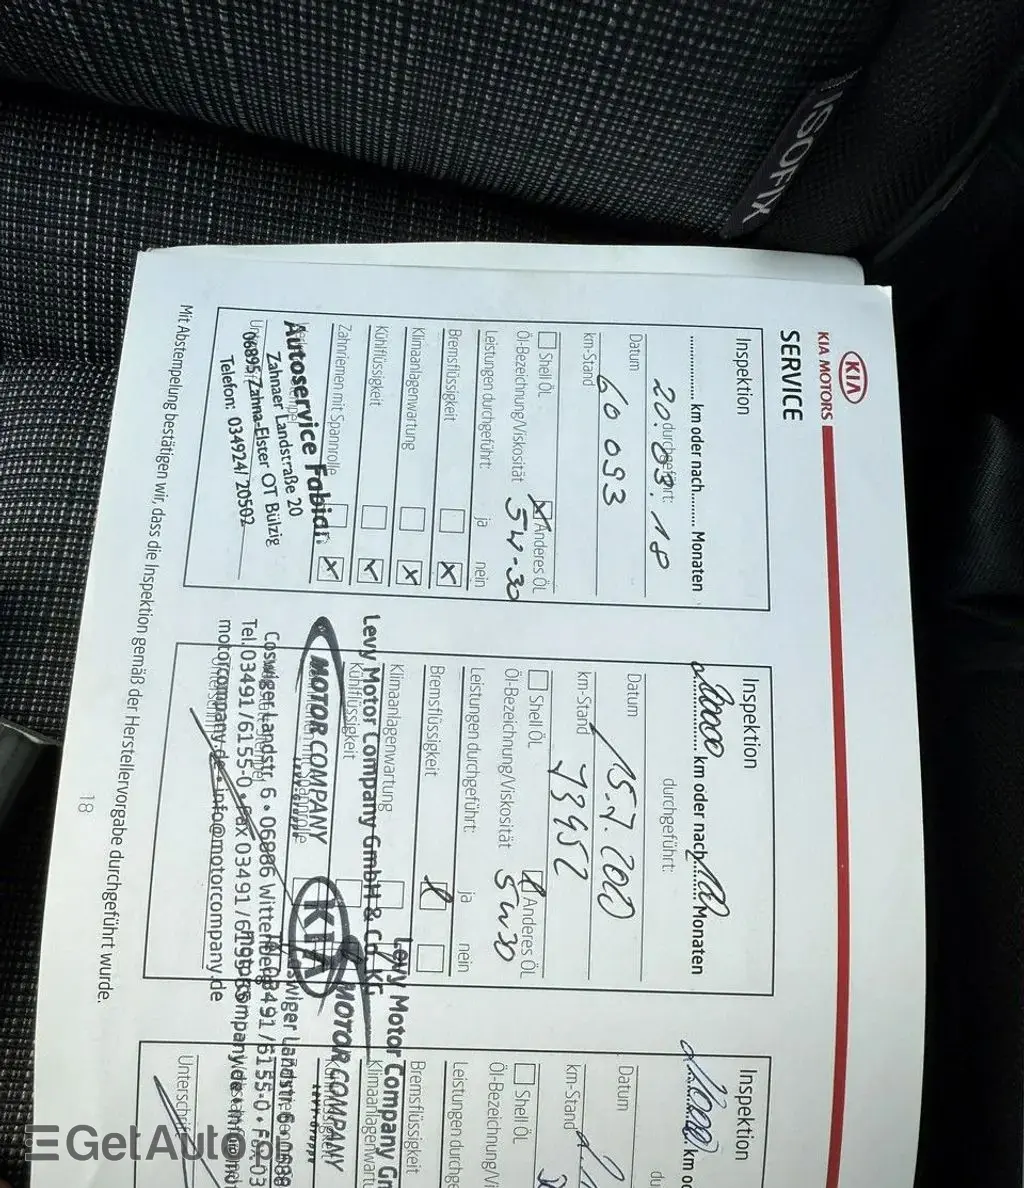 ISOFIX
KIA
KIA MOTORS
SERVICE
Inspektion
............... km oder nach......... Monaten
durchgeführt:
Datum
20.03.18
km-Stand
60 093
Shell ÖL
Anderes ÖL
Öl-Bezeichnung/Viskosität
5W-30
Leistungen durchgeführt:
ja
nein
Bremsflüssigkeit
Klimaanlagenwartung
Kühlflüssigkeit
Zahnriemen mit Spannrolle
Autoservice Fabian
Zahnaer Landstraße 20
06895 Zahna-Elster OT Bülzig
Telefon: 034924/20502
Inspektion
km oder nach Monaten
durchgeführt:
Datum
15.7.
km-Stand
73952
Shell ÖL
Anderes ÖL
Öl-Bezeichnung/Viskosität
5W30
Leistungen durchgeführt:
ja
nein
Bremsflüssigkeit
Klimaanlagenwartung
Kühlflüssigkeit
Levy Motor Company GmbH & Co. KG
MOTOR COMPANY
KIA
Coswiger Landstr. 6 • 06886 Wittenberg
Tel. 03491/6155-0 • Fax 03491/
motorcompany.de • info@motorcompany.de
Inspektion
km
Datum
km-Stand
Shell ÖL
Öl-Bezeichnung/Vi
Leistungen durchge
Bremsflüssigkeit
Klimaanlagenwartu
Levy Motor Company Gm
MOTOR COMPANY
Coswiger Landstr. 6
03491/6155-0
Unterschrift
Mit Abstempelung bestätigen wir, dass die Inspektion gemäß der Herstellervorgabe durchgeführt wurde.
18
GetAuto